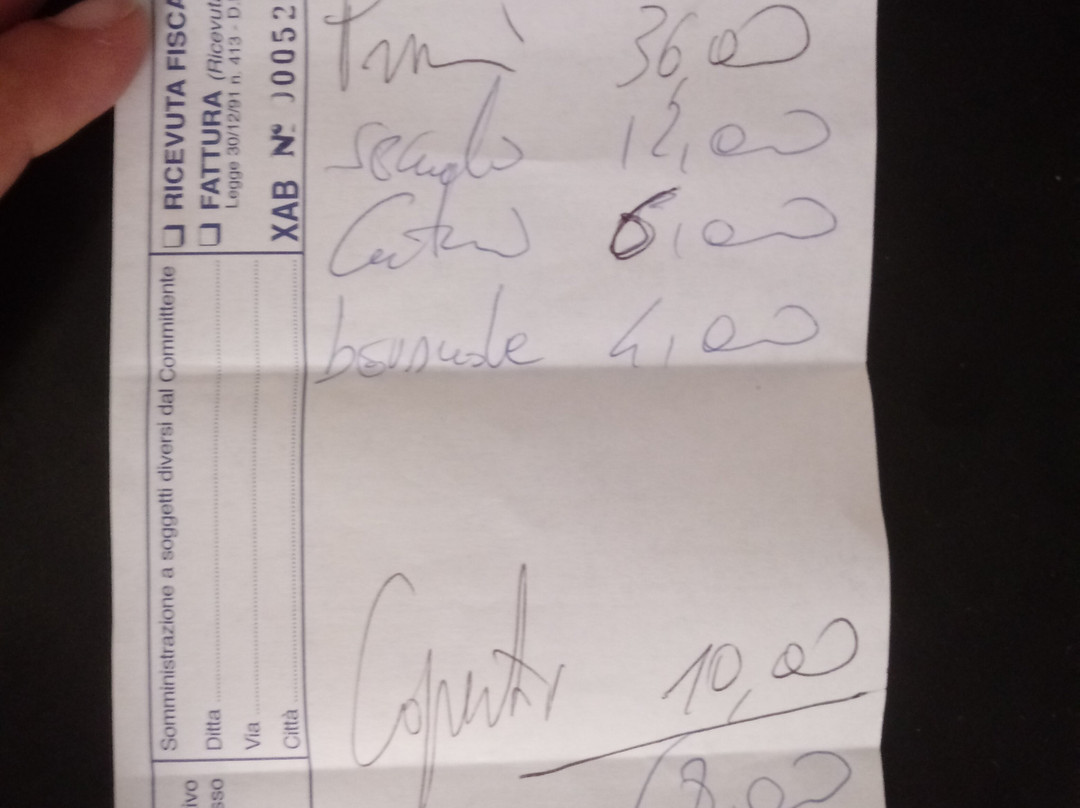 RICEVUTA FISCA
FATTURA (Ricevut
Legge 30/12/91 n. 413 - D.
XAB Nº 00052
Somministrazione a soggetti diversi dal Committente
Ditta
Via
Città
ivo
sso
Primi 36,00
secondo 12,00
6,00
bevande 4,00
Coperti 10,00
68,00